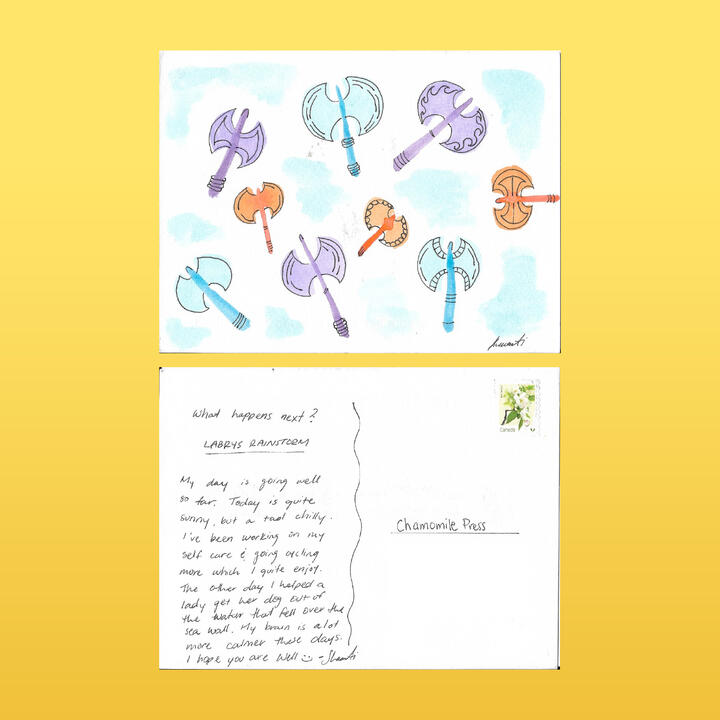 Shanti
What happens next?
LABRYS RAINSTORM
My day is going well
so far. Today is quite
sunny, but a tad chilly.
I've been working on my
self care & going cycling
more which I quite enjoy.
The other day I helped a
lady get her dog out of
the water that fell over the
sea wall. My brain is a lot
more calmer these days.
I hope you are well ☺ -Shanti
Canada
P
Chamomile Press